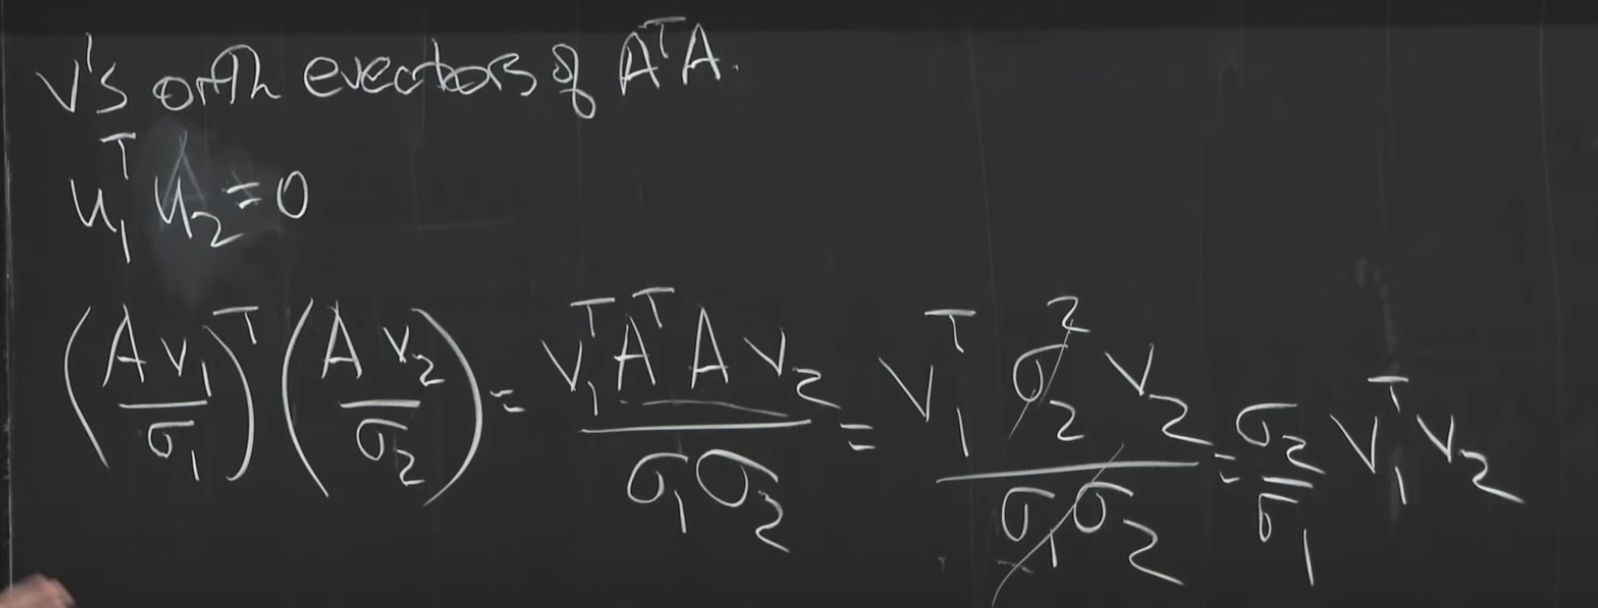 v's orth evectors of AᵀA.
u₁ᵀ u₂ = 0
(A v₁ / σ₁)ᵀ (A v₂ / σ₂) = v₁ᵀ Aᵀ A v₂ / σ₁ σ₂ = v₁ᵀ σ₂² v₂ / σ₁ σ₂ = σ₂ / σ₁ v₁ᵀ v₂